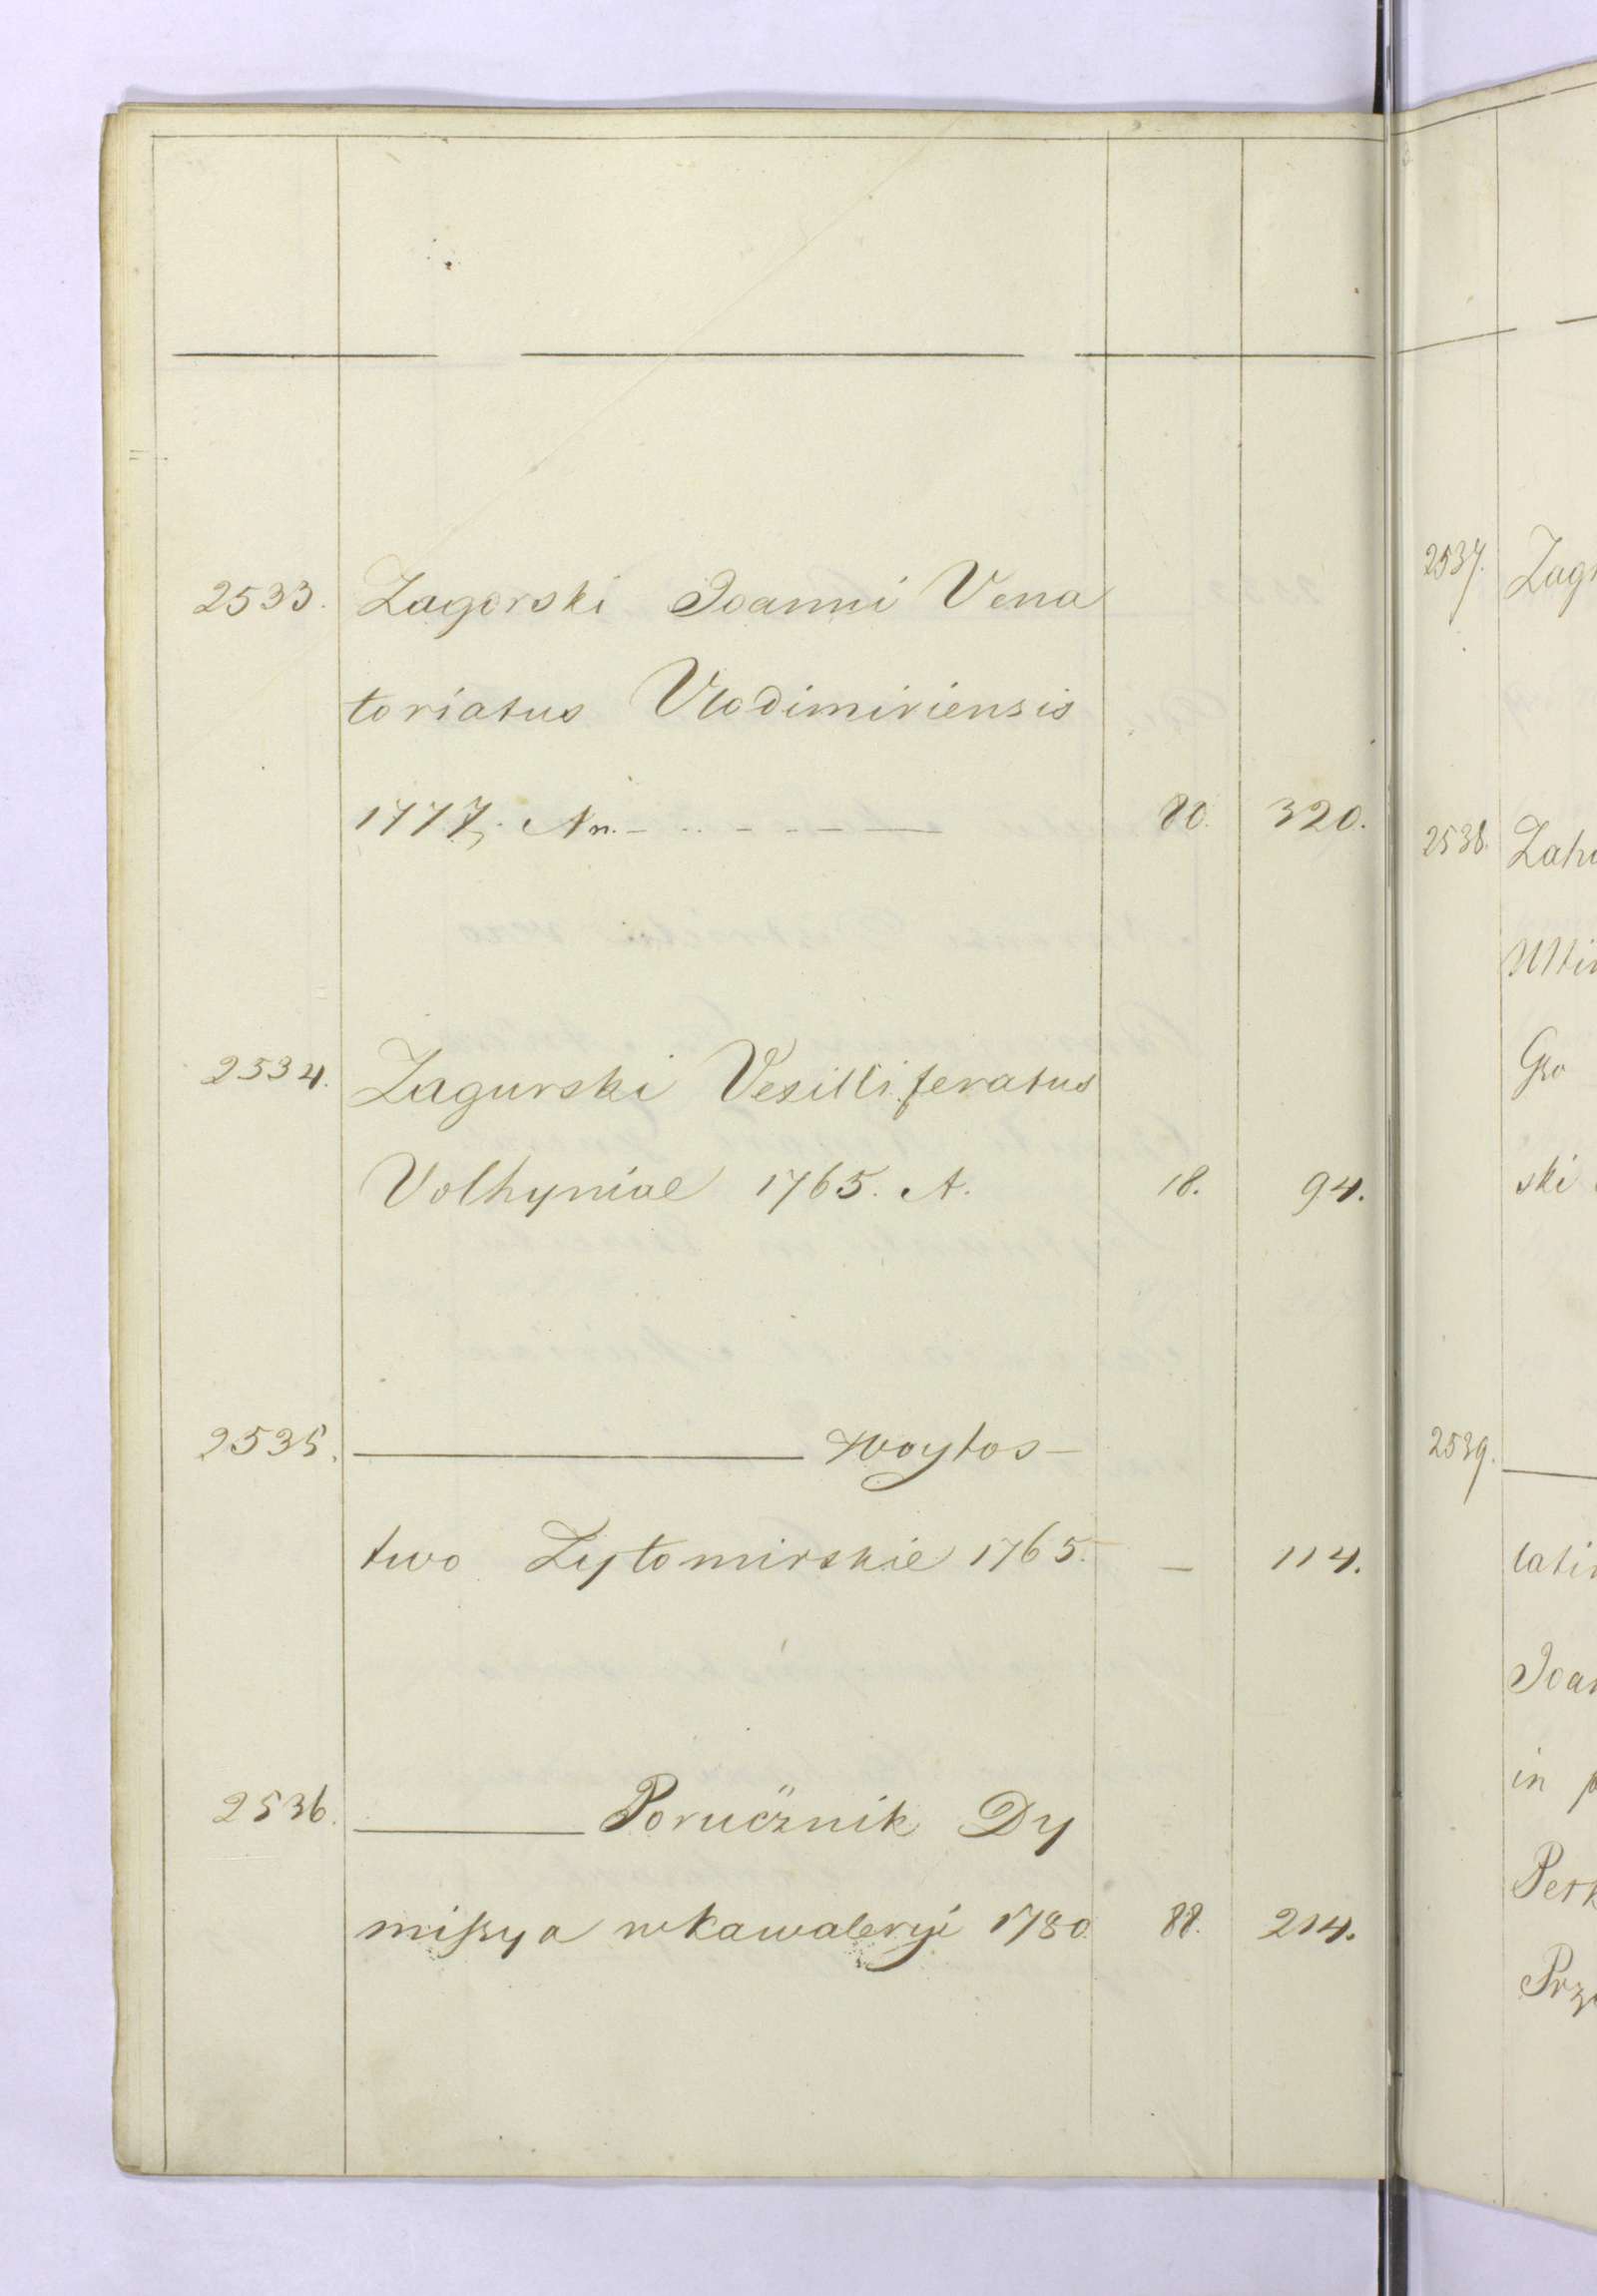 2533. Zagorski Joanni Vena
toriatus Vlodimiriensis
1777. Nn. - - - - - - 80. 320.
2534. Zagurski Vexilliferatus
Volhyniae 1765. A. 18. 94.
2535. ——— Woytos-
two Zytomirskie 1765. — 114.
2536. ——— Porucznik Dy
missya w kawaleryi 1780. 88. 214.
2537. Zag
2538. Zaho
Ultim
Gro
ski
2539. ———
lati
Joan
in p
Perk
Prz